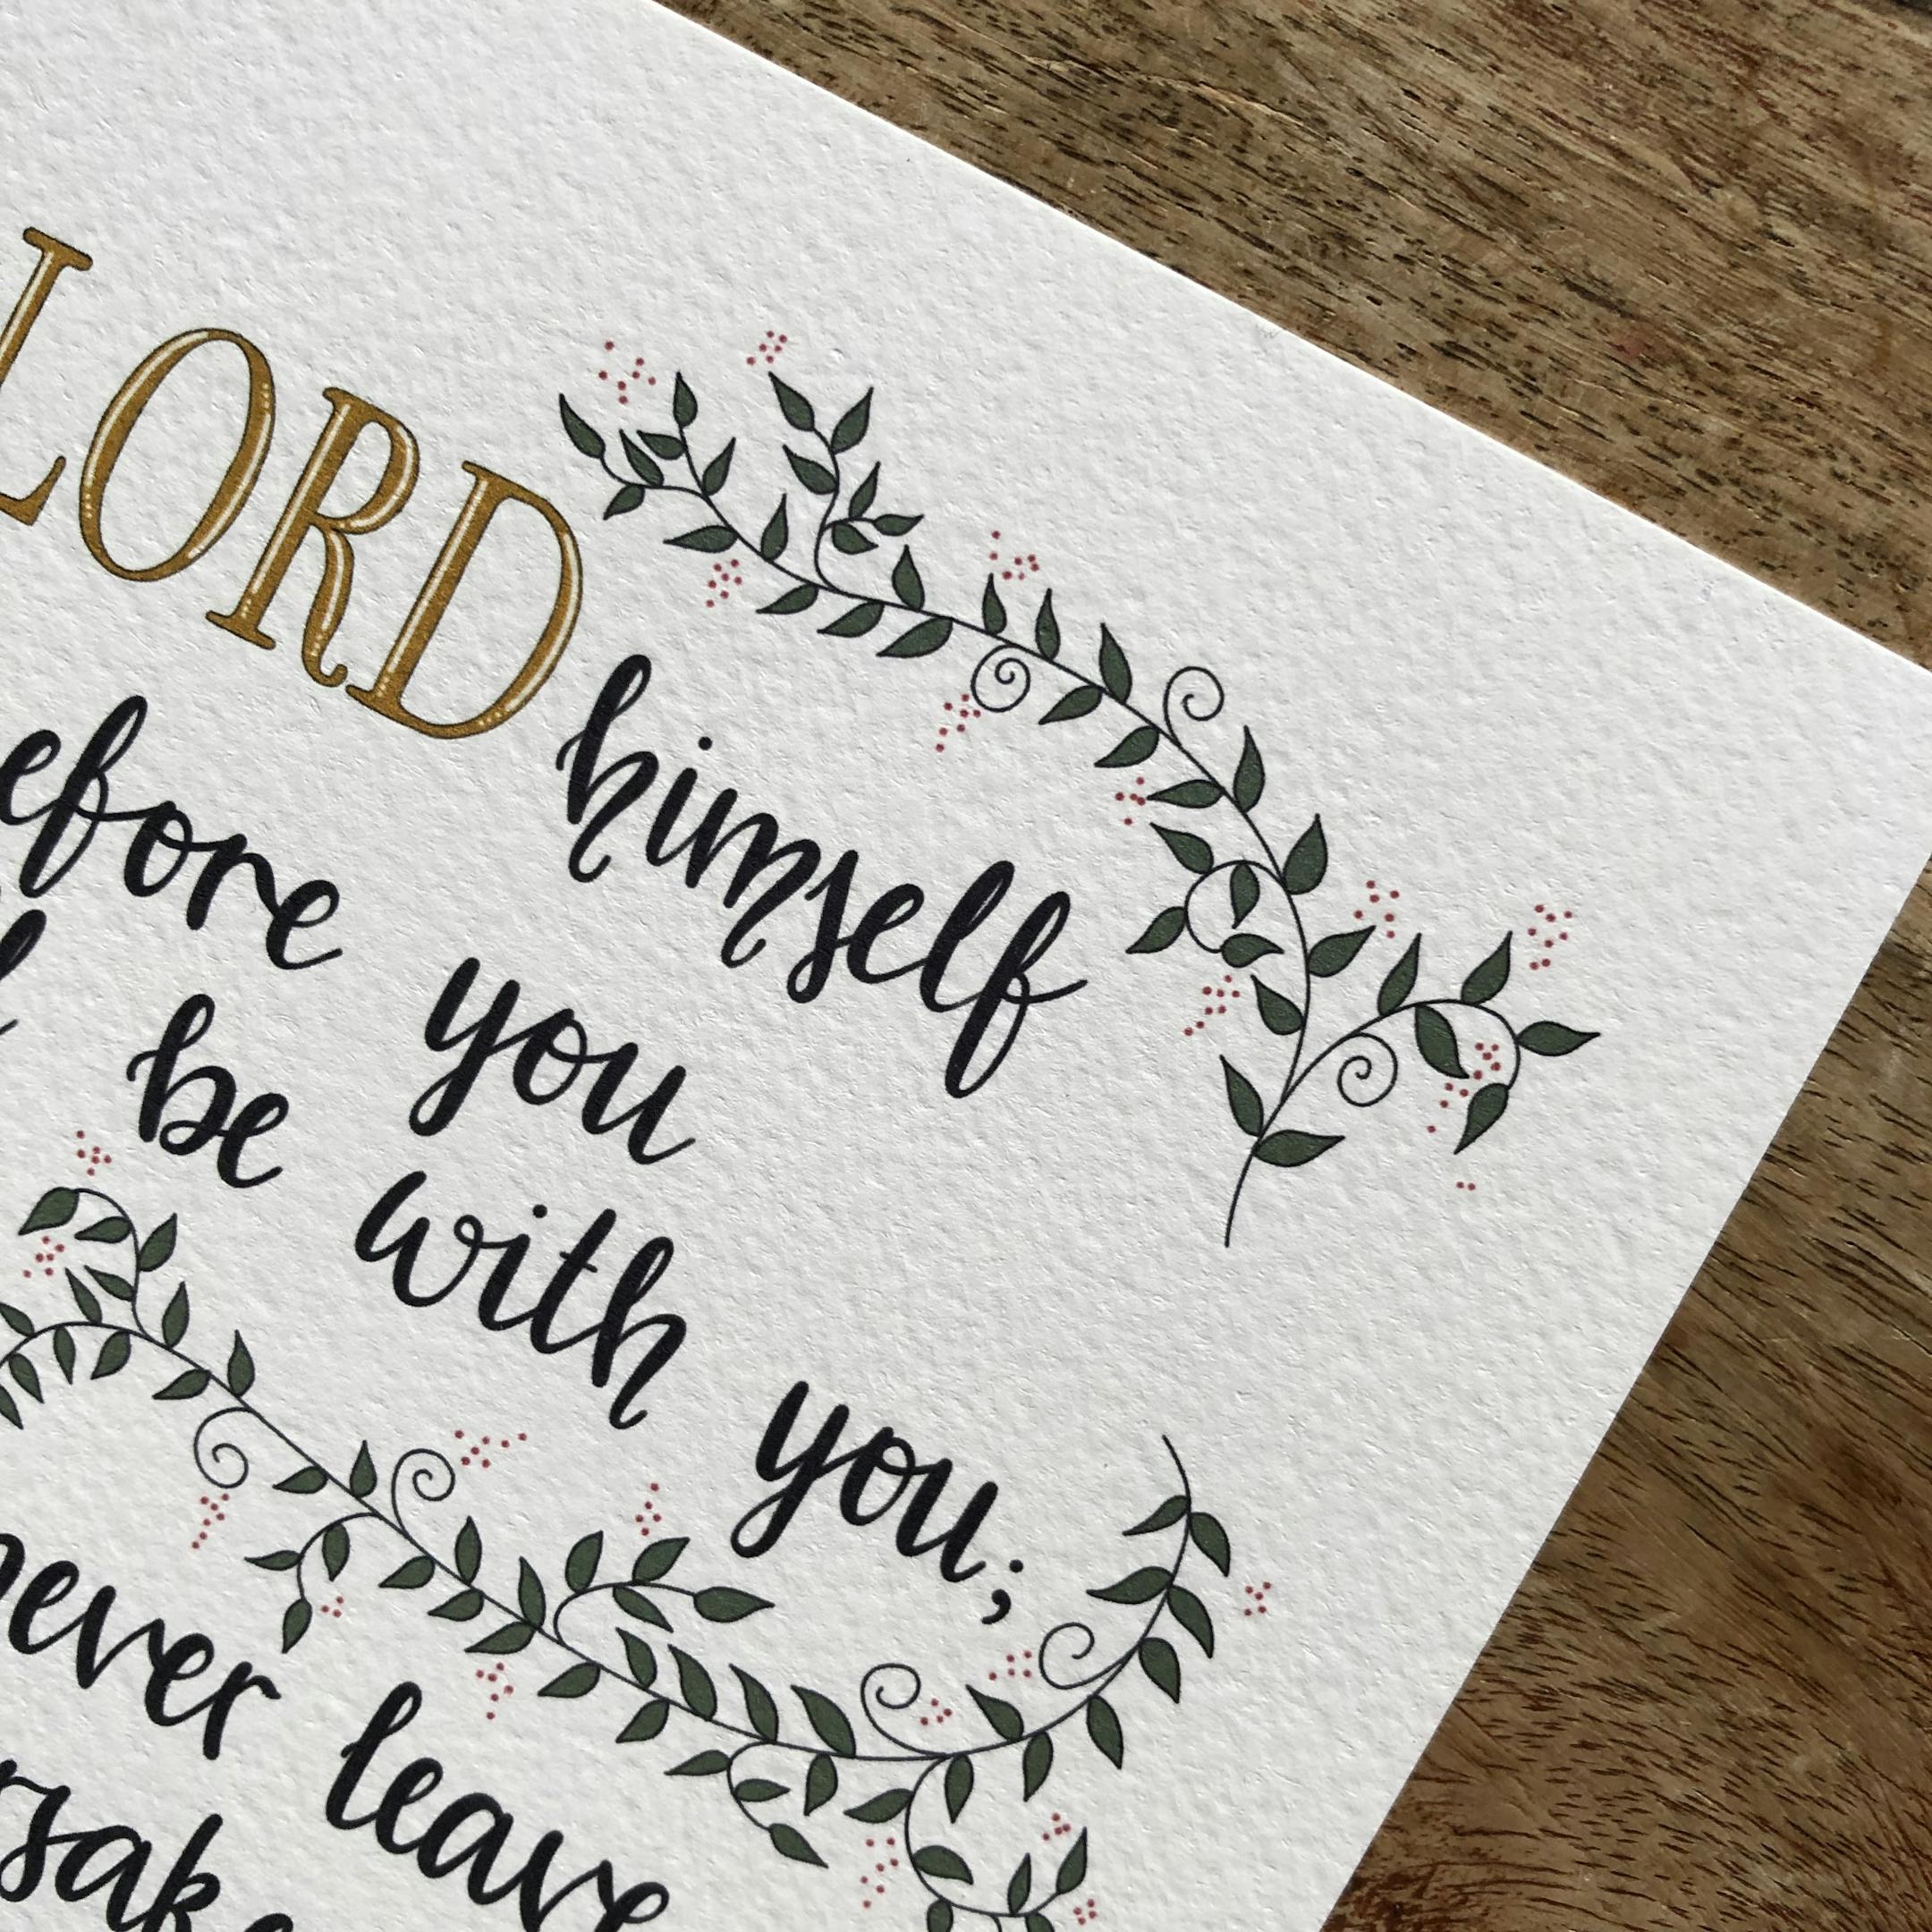 LORD himself
efore you
be with you;
never leave
rsake